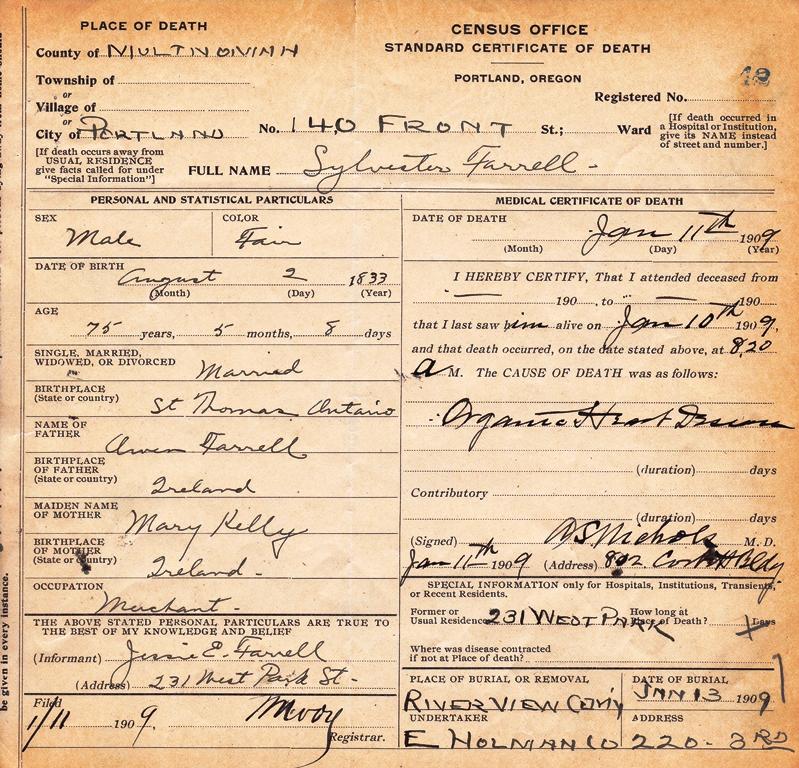 PLACE OF DEATH
County of MULTNOMAH
Township of
or
Village of
or
City of PORTLAND
[If death occurs away from
USUAL RESIDENCE
give facts called for under
"Special Information"]
CENSUS OFFICE
STANDARD CERTIFICATE OF DEATH
PORTLAND, OREGON
Registered No. 42
No. 140 FRONT St.; Ward
[If death occurred in
a Hospital or Institution,
give its NAME instead
of street and number.]
FULL NAME Sylvester Farrell -
PERSONAL AND STATISTICAL PARTICULARS
SEX
Male
COLOR
Fair
DATE OF BIRTH
August 2 1833
(Month) (Day) (Year)
AGE
75 years, 5 months, 8 days
SINGLE, MARRIED,
WIDOWED, OR DIVORCED
Married
BIRTHPLACE
(State or country)
St Thomas Ontario
NAME OF
FATHER
Owen Farrell
BIRTHPLACE
OF FATHER
(State or country)
Ireland
MAIDEN NAME
OF MOTHER
Mary Kelly
BIRTHPLACE
OF MOTHER
(State or country)
Ireland -
OCCUPATION
Merchant -
THE ABOVE STATED PERSONAL PARTICULARS ARE TRUE TO
THE BEST OF MY KNOWLEDGE AND BELIEF
(Informant) Jessie E. Farrell
(Address) 231 West Park St -
Filed
1/11 1909. Registrar.
MEDICAL CERTIFICATE OF DEATH
DATE OF DEATH
Jan 11th 1909
(Month) (Day) (Year)
I HEREBY CERTIFY, That I attended deceased from
— 190 , to — 190
that I last saw him alive on Jan 10th 1909,
and that death occurred, on the date stated above, at 8.20
a M. The CAUSE OF DEATH was as follows:
Organic Heart Disease
(duration) days
Contributory
(duration) days
(Signed) Nichols M. D.
Jan 11th 1909 (Address) 802 Corbett Bldg
SPECIAL INFORMATION only for Hospitals, Institutions, Transients,
or Recent Residents.
Former or
Usual Residence 231 WEST PARK
How long at
Place of Death? Days
Where was disease contracted
if not at Place of death?
PLACE OF BURIAL OR REMOVAL
RIVER VIEW Cem'y
DATE OF BURIAL
JAN 13 1909
UNDERTAKER
E HOLMAN CO
ADDRESS
220 - 3RD
be given in every instance.